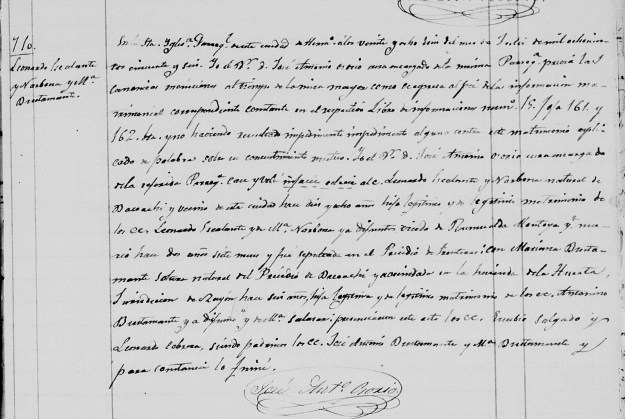 710.
Leonardo Escalante
y Narbona y Ma.
Bustamante.
En la Sta. Yglesa. Parroql. de esta ciudad de Hermo. á los veinte y ocho dias del mes de Julio de mil ochocien
tos cincuenta y seis. Yo el Br. D. José Antonio Osorio cura encargado de la misma Parroqa.
canonicas moniciones al tiempo de la misa mayor como se expresa al fé de la informacion ma
trimonial correspondiente constante en el respectivo Libro de informaciones num. 15. fja 161. y
162. y no haciendo resultado impedimento alguno contra este matrimonio
de palabra sobre su consentimiento mutuo. Yo el Br. D. José Antonio Osorio cura encargado
de la referida Parroqa. casé y velé infacie eclecie al c. Leonardo Escalante y Narbona natural de
Bacoachi y vecino de esta ciudad hace diez y ocho años hijo legitimo y de legitimo matrimonio de
los cc. Leonardo Escalante y de Ma. Narbona ya difuntos viudo de Rumualda Montoya qe. mu
rió hace dos años siete meses y fué sepultada en el Presidio de Fronteras: con Mariana Busta
mante soltera natural del Presidio de Bacoachi y avecindada en la hacienda de la Huerta,
Jurisdiccion de Rayon hace seis años, hija legitima y de legitimo matrimonio de los cc. Antonino
Bustamante ya difunto y de Ma. Salazar: presenciaron este acto los cc. Eusebio Salgado y
Leonardo siendo padrinos los cc. José Antonio Bustamante y Ma. Bustamante y
para constancia lo firmé.
José Anto. Osorio